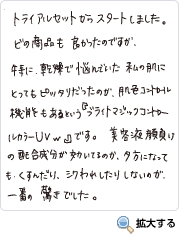 トライアルセットからスタートしました。
どの商品も良かったのですが、
特に、乾燥で悩んでいた私の肌に
とってもピッタリだったのが、肌色コントロール
機能もあるという『ブライトマジックコントロー
ルカラーUV w』です。美容液顔負け
の配合成分が効いてるのか、夕方になって
も、くすんだり、シワれたりしないのが、
一番の驚きでした。
拡大する